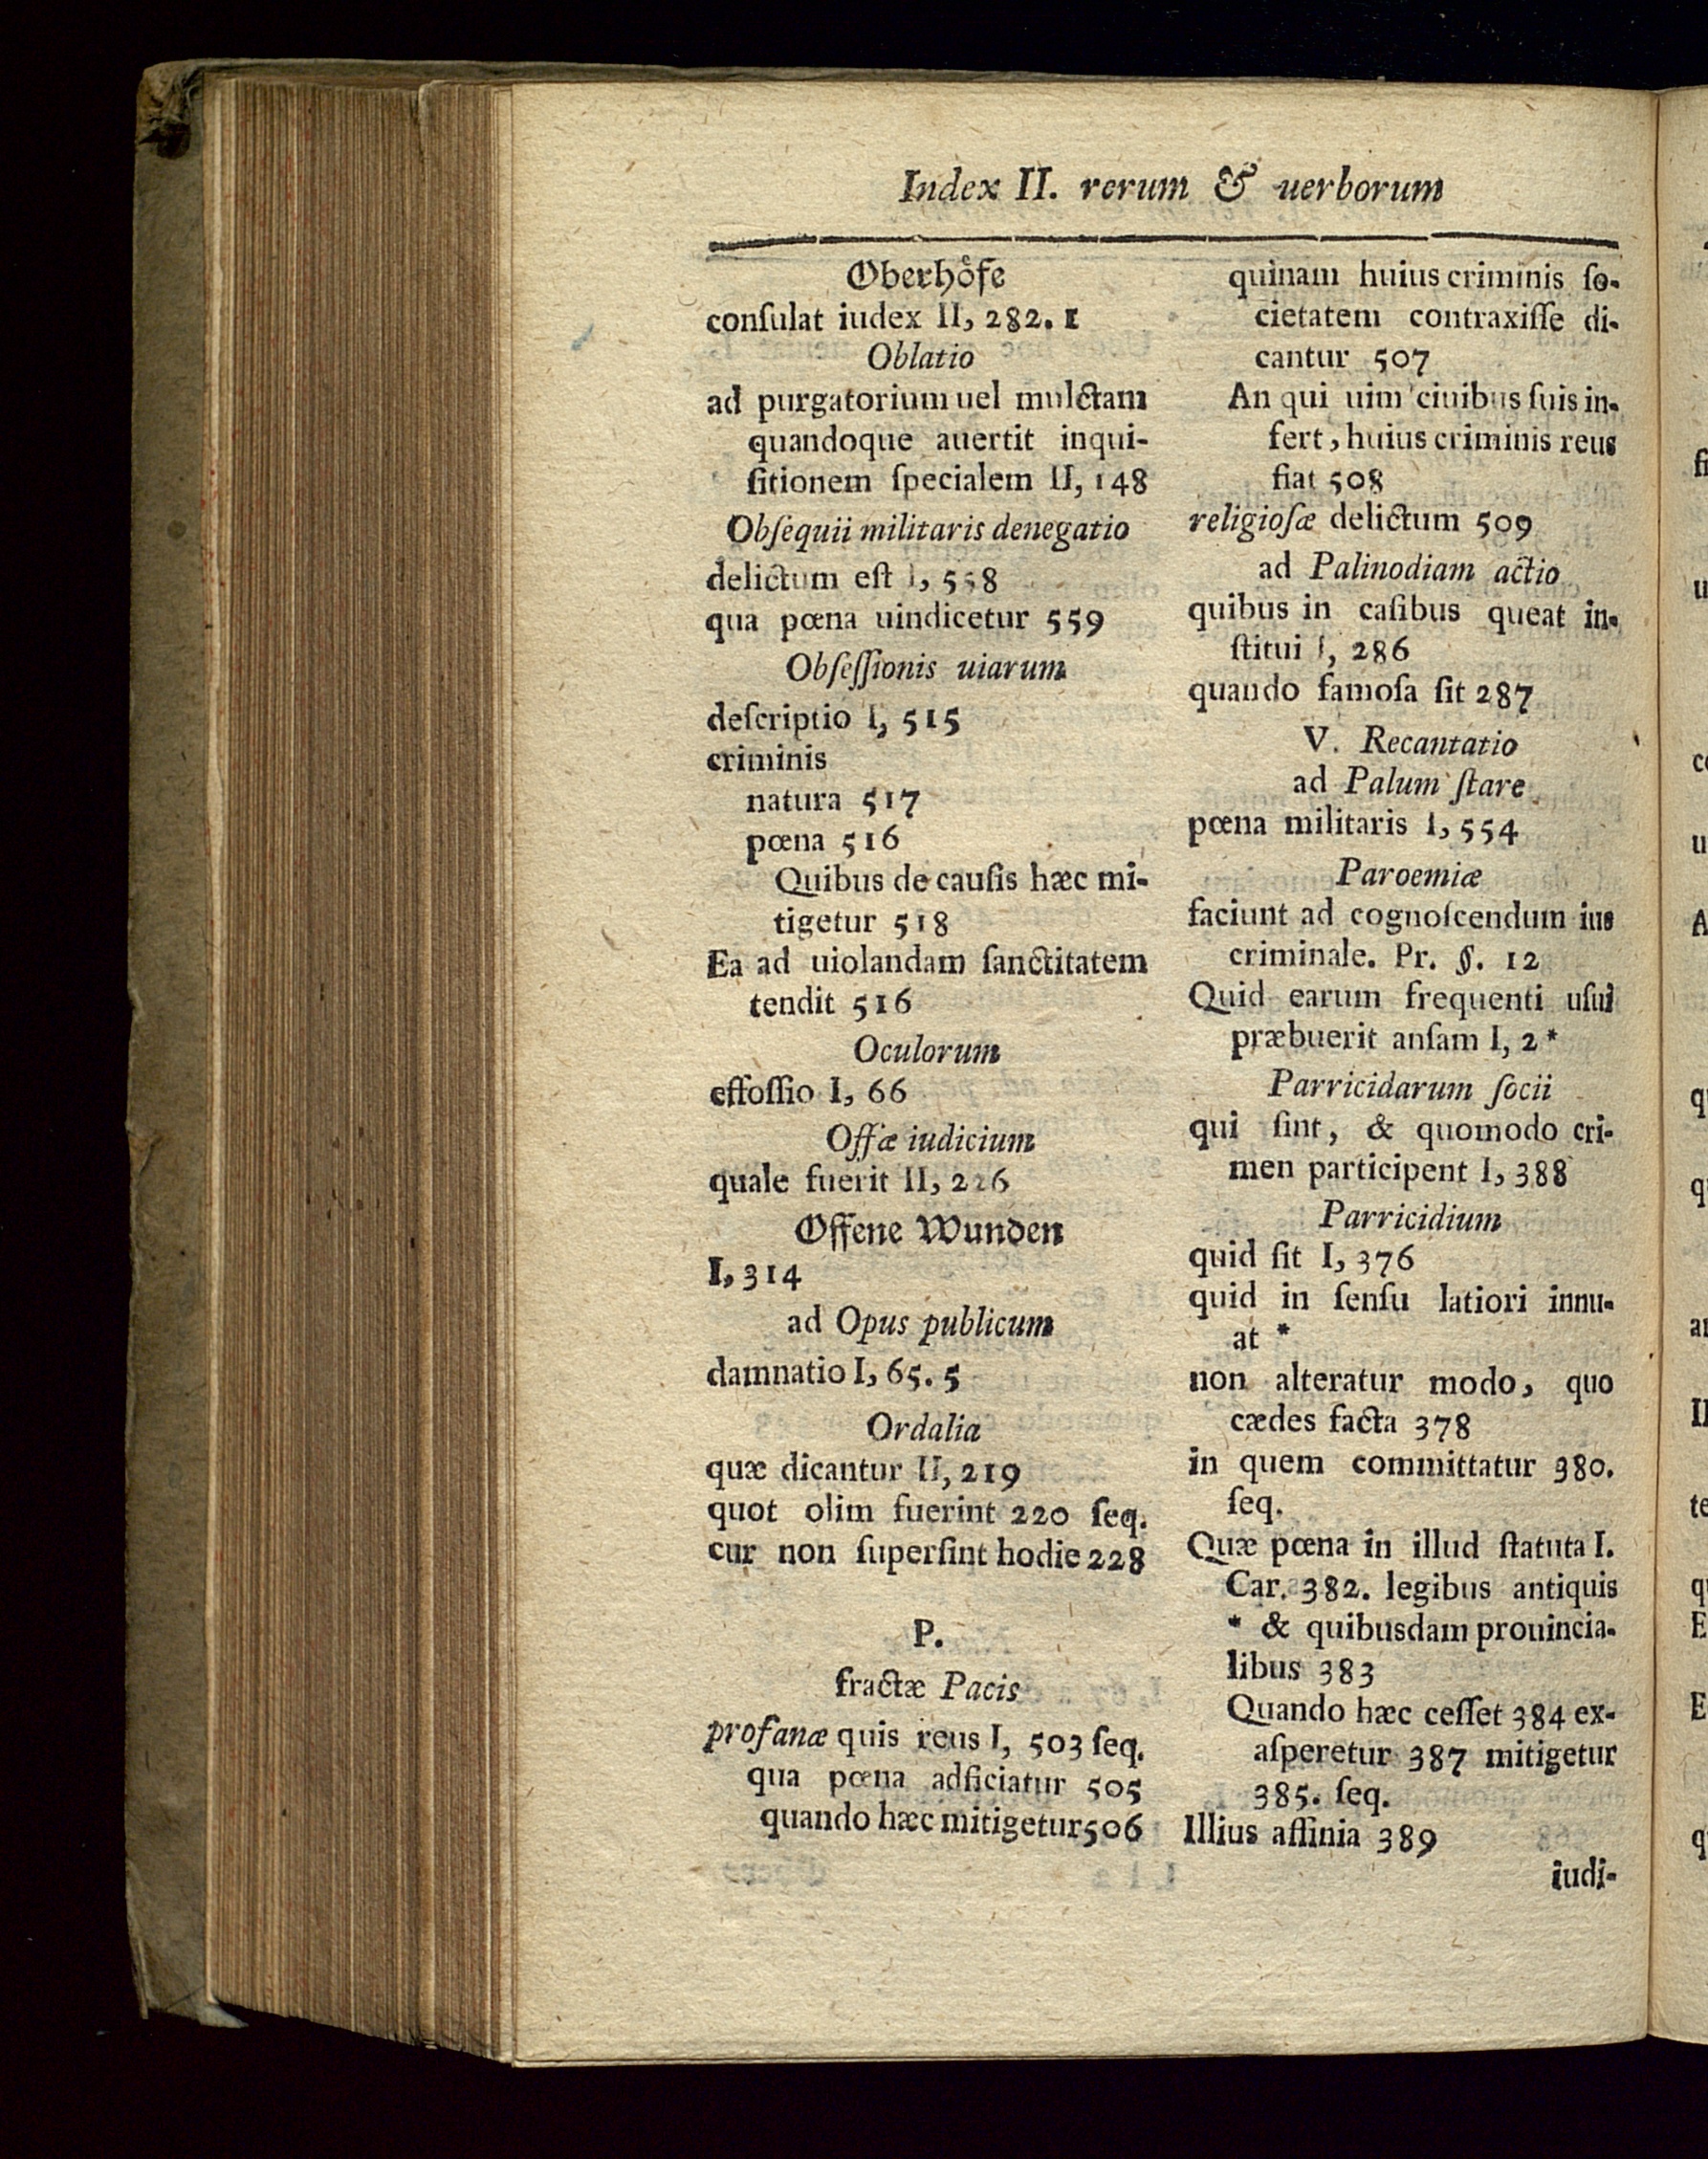 Index II. rerum & uerborum
Oberhöfe
conſulat iudex II, 282. 1
Oblatio
ad purgatorium uel mulctam
quandoque auertit inqui-
ſitionem ſpecialem II, 148
Obſequii militaris denegatio
delictum eſt I, 558
qua pœna uindicetur 559
Obſeſſionis uiarum
deſcriptio I, 515
criminis
natura 517
pœna 516
Quibus de cauſis hæc mi-
tigetur 518
Ea ad uiolandam ſanctitatem
tendit 516
Oculorum
effoſſio I, 66
Offæ iudicium
quale fuerit II, 226
Offene Wunden
I, 314
ad Opus publicum
damnatio I, 65. 5
Ordalia
quæ dicantur II, 219
quot olim fuerint 220 ſeq.
cur non ſuperſint hodie 228
P.
fractæ Pacis
profanæ quis reus I, 503 ſeq.
qua pœna adficiatur 505
quando hæc mitigetur 506
quinam huius criminis ſo-
cietatem contraxiſſe di-
cantur 507
An qui uim ciuibus ſuis in-
fert, huius criminis reus
fiat 508
religioſæ delictum 509
ad Palinodiam actio
quibus in caſibus queat in-
ſtitui I, 286
quando famoſa ſit 287
V. Recantatio
ad Palum ſtare
pœna militaris I, 554
Paroemiæ
faciunt ad cognoſcendum ius
criminale. Pr. §. 12
Quid earum frequenti uſui
præbuerit anſam I, 2 *
Parricidarum ſocii
qui ſint, & quomodo cri-
men participent I, 388
Parricidium
quid ſit I, 376
quid in ſenſu latiori innu-
at *
non alteratur modo, quo
cædes facta 378
in quem committatur 380.
ſeq.
Quæ pœna in illud ſtatuta I.
Car. 382. legibus antiquis
* & quibusdam prouincia-
libus 383
Quando hæc ceſſet 384 ex-
aſperetur 387 mitigetur
385. ſeq.
Illius affinia 389
iudi-